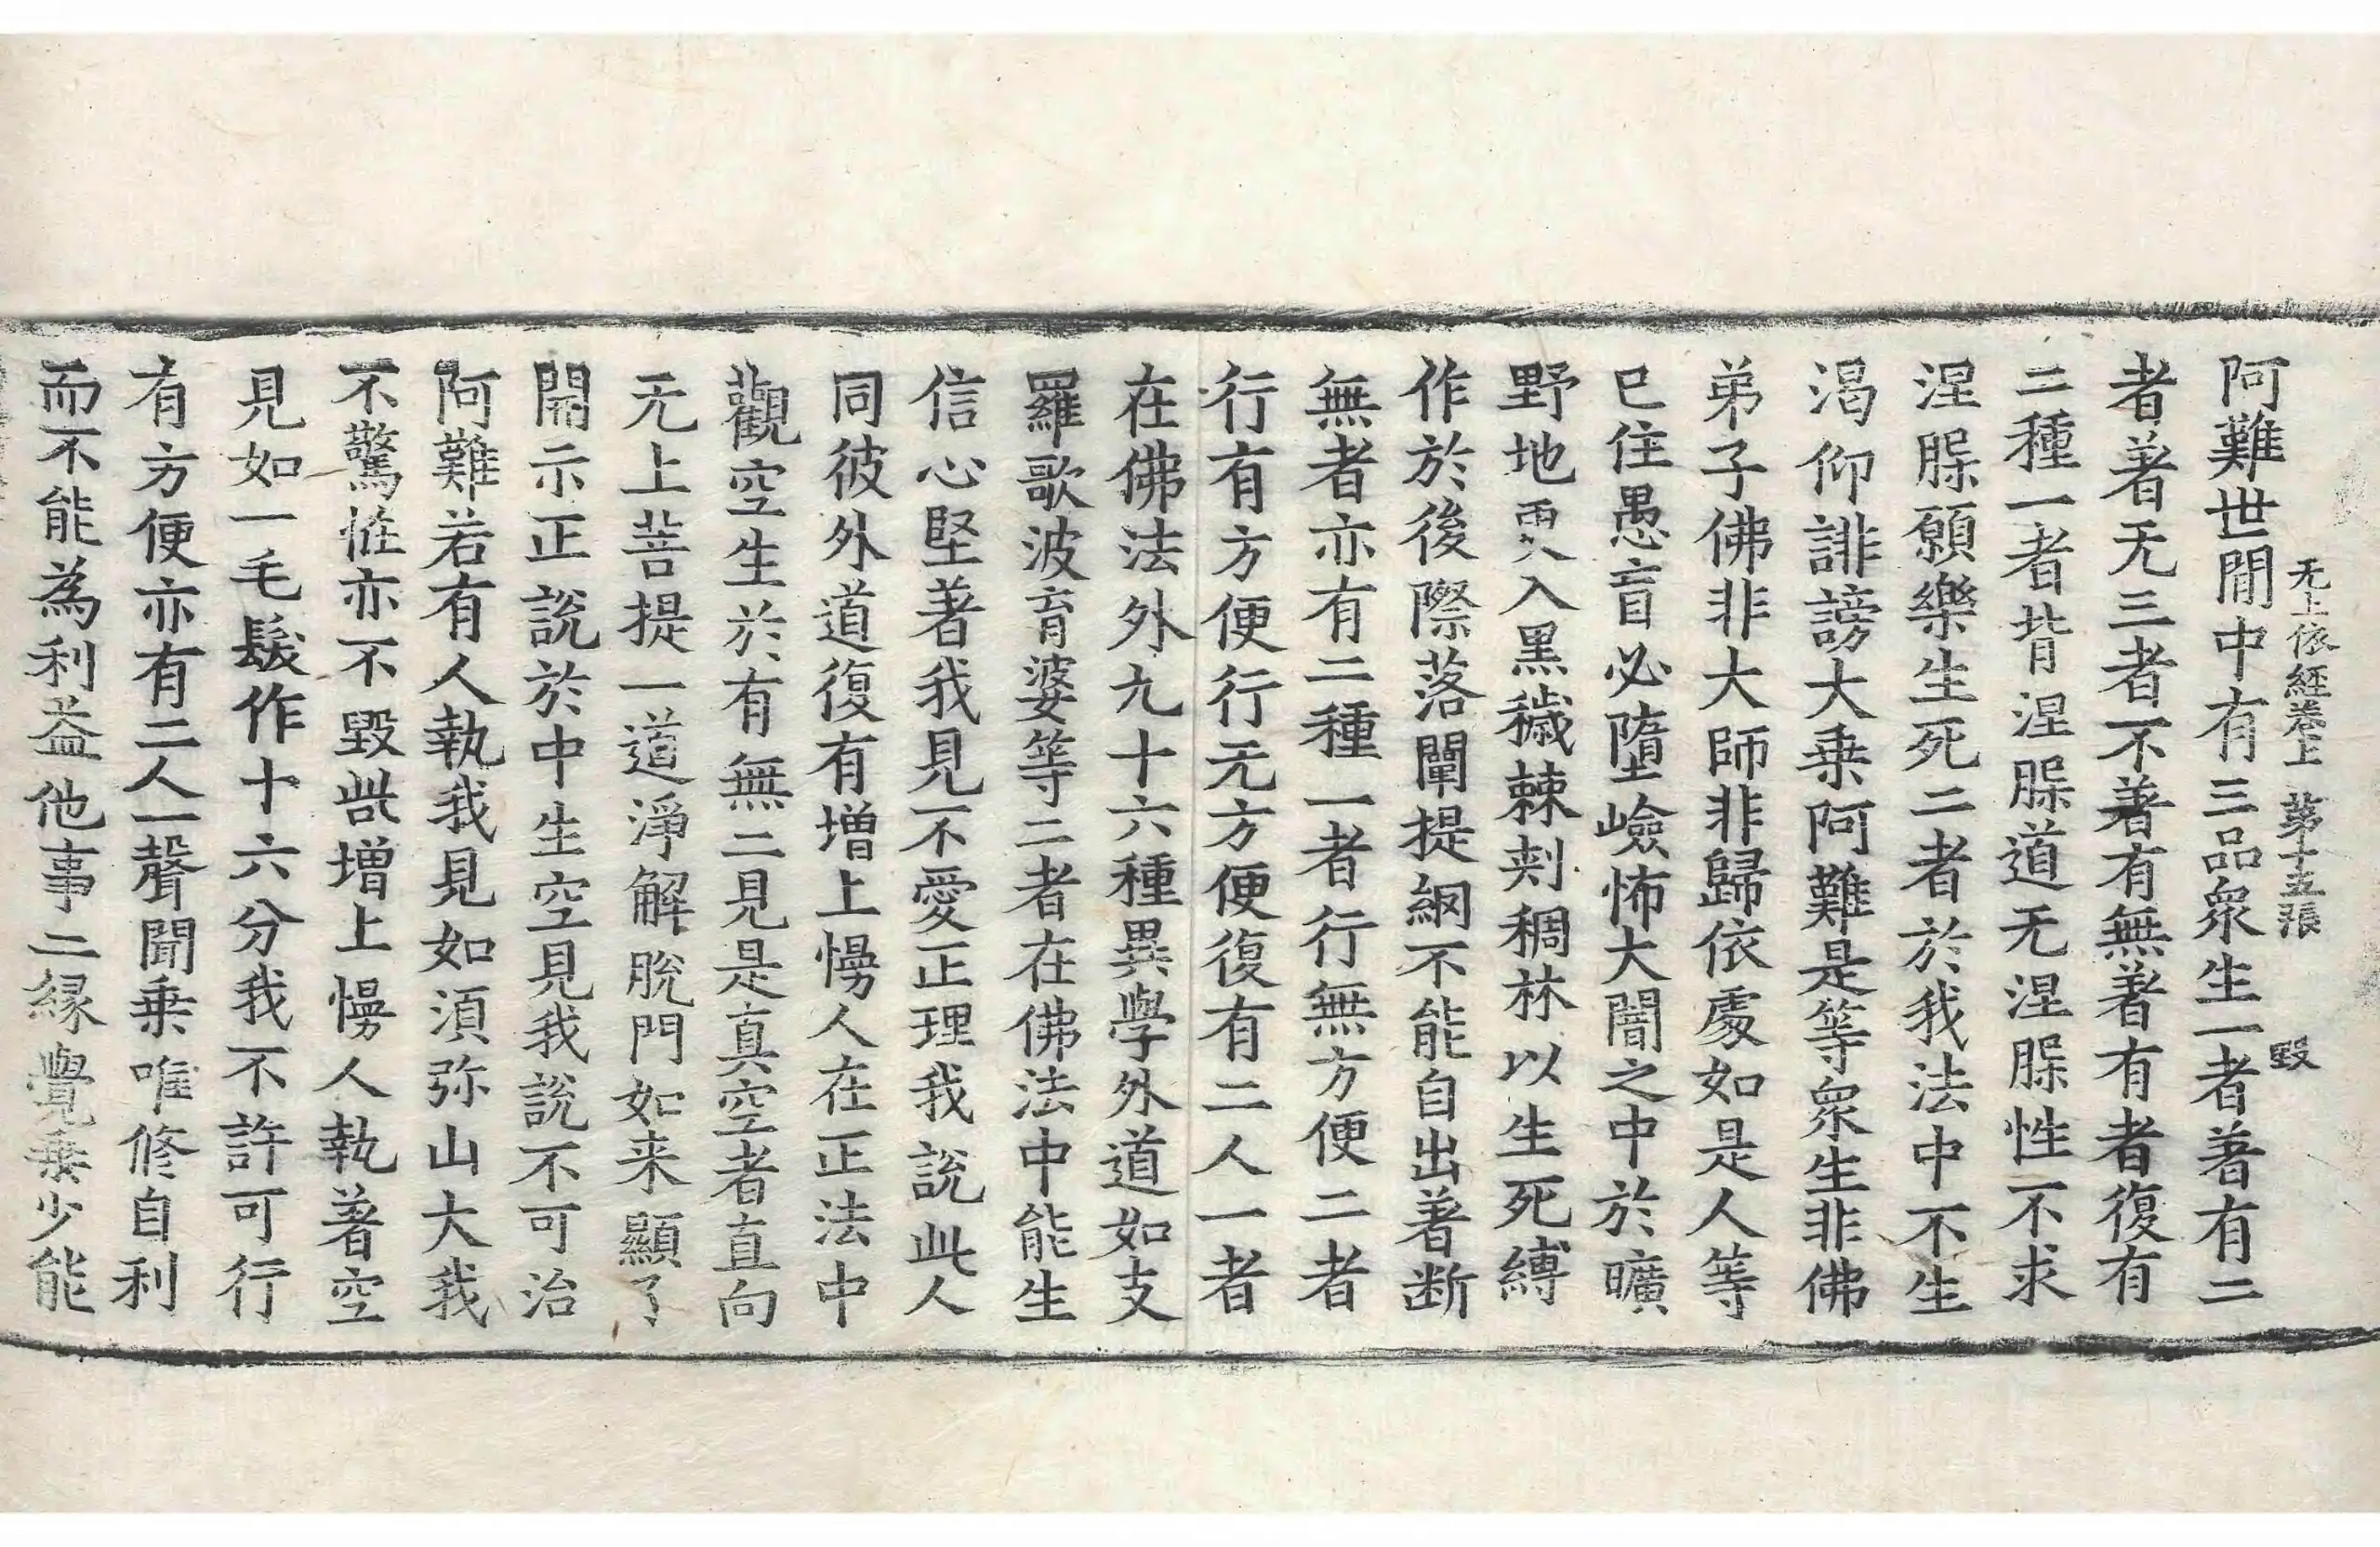 无上依経卷上 第十五張 毀
阿難世間中有三品衆生一者著有二
者著无三者不著有無著有者復有
二種一者背涅槃道无涅槃性不求
涅槃願樂生死二者於我法中不生
渴仰誹謗大乗阿難是等衆生非佛
弟子佛非大師非歸依處如是人等
已住愚盲必墮嶮怖大闇之中於曠
野地更入黑穢棘刾稠林以生死縛
作於後際落闡提網不能自出著断
無者亦有二種一者行無方便二者
行有方便行无方便復有二人一者
在佛法外九十六種異學外道如支
羅歌波育婆等二者在佛法中能生
信心堅著我見不愛正理我說此人
同彼外道復有增上慢人在正法中
觀空生於有無二見是真空者直向
无上菩提一道淨解脫門如来顯了
開示正說於中生空見我說不可治
阿難若有人執我見如須弥山大我
不驚恠亦不毀呰增上慢人執著空
見如一毛髮作十六分我不許可行
有方便亦有二人一聲聞乗唯修自利
而不能為利益他事二縁覺乗少能